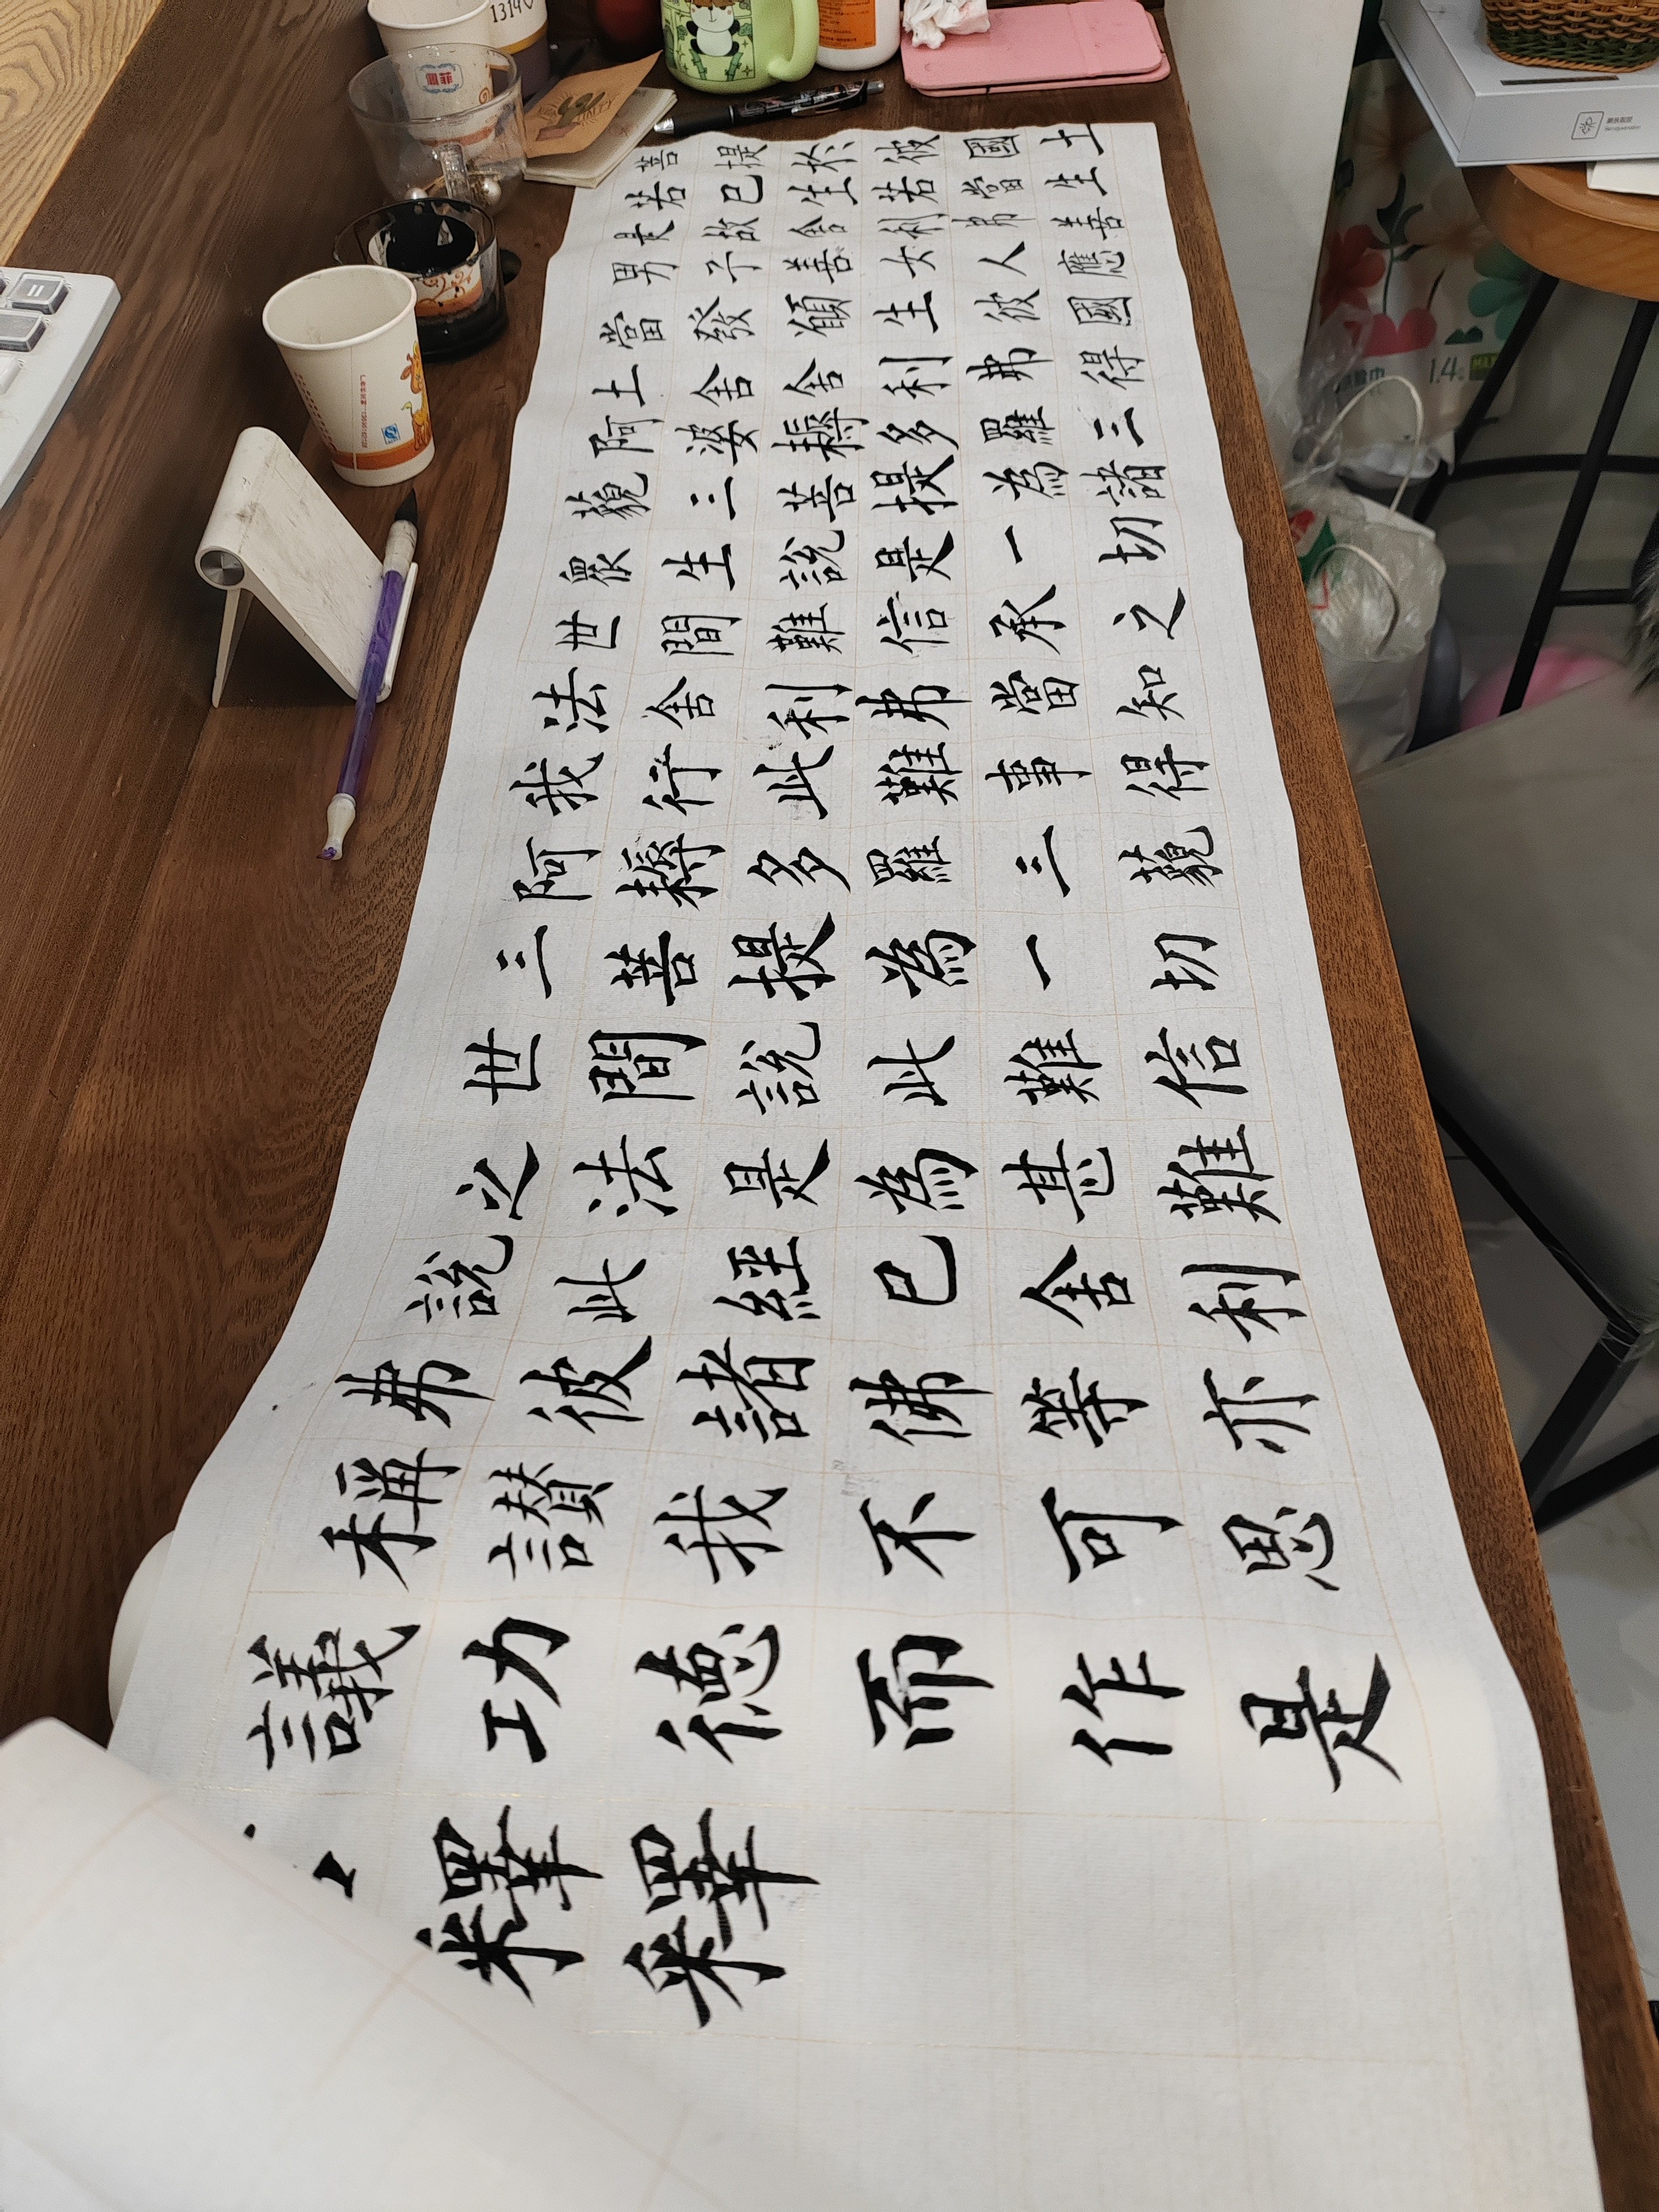 菩提於彼國土
若已生若當生
是故舍利弗善
男子善女人應
當發願生彼國
土舍舍利弗得
阿婆耨多羅三
藐三菩提為諸
眾生說是一切
世間難信承之
法舍利弗當知
我行此難事得
阿耨多羅三藐
三菩提為一切
世間說此難信
之法是為甚難
說此經已舍利
弗彼諸佛等亦
稱讚我不可思
議功德而作是
釋釋
1314